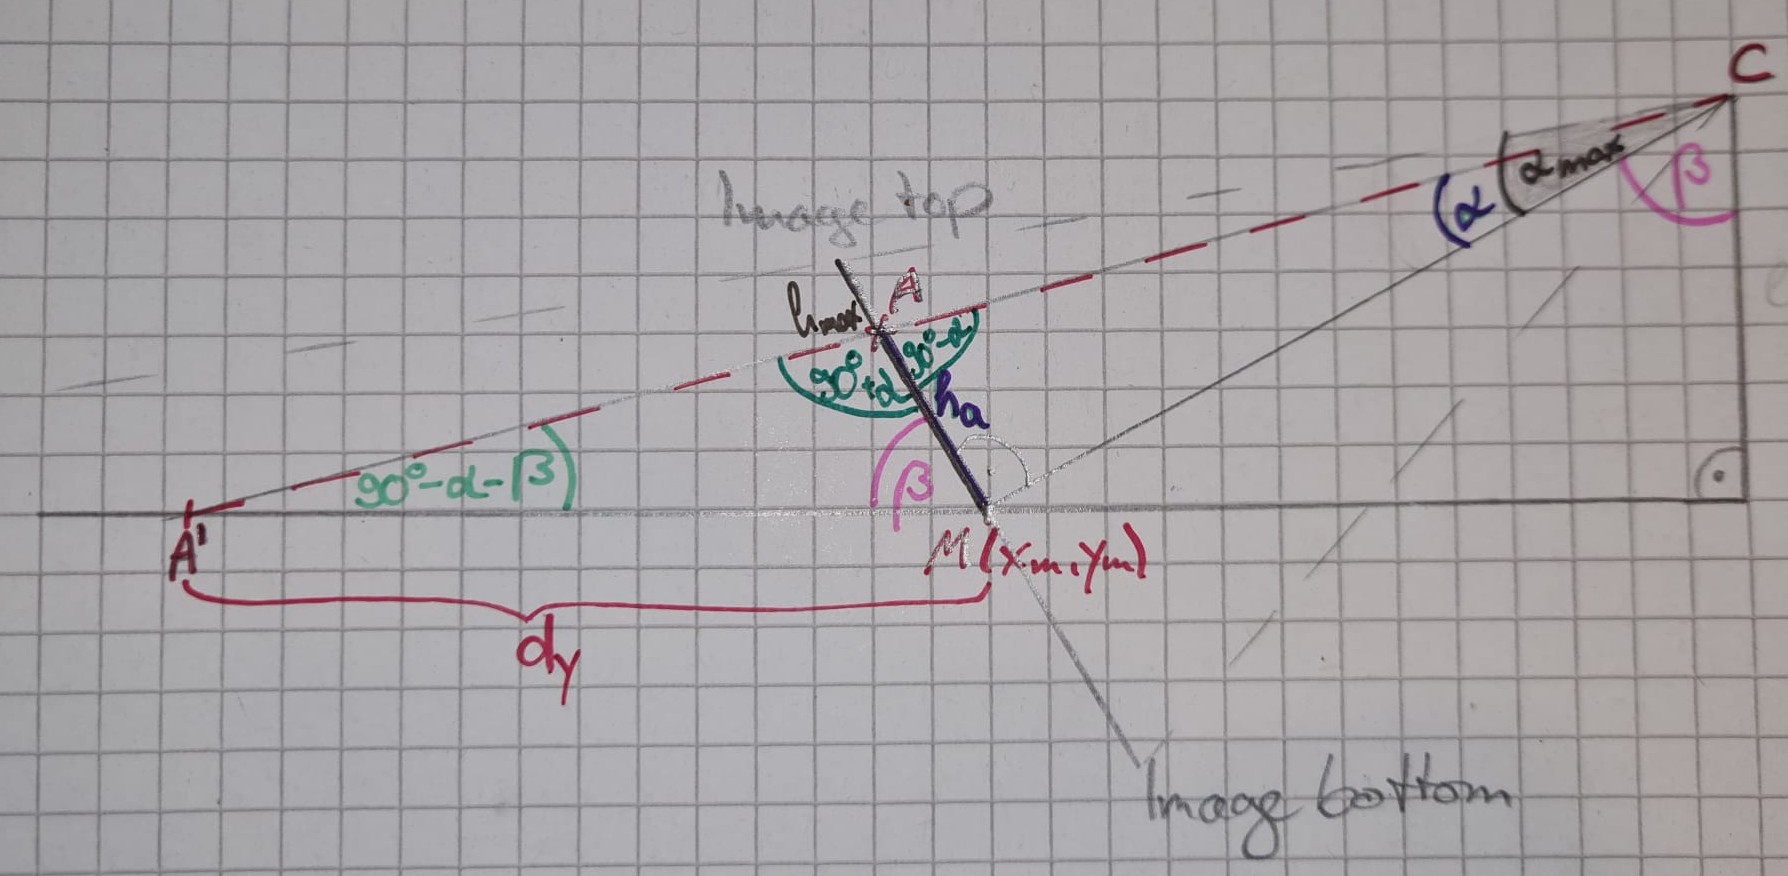 C
αmax
β
α
Image top
A
hmax
90°-α
90°+α
ha
90°-α-β
β
A'
M(xm, ym)
dy
Image bottom